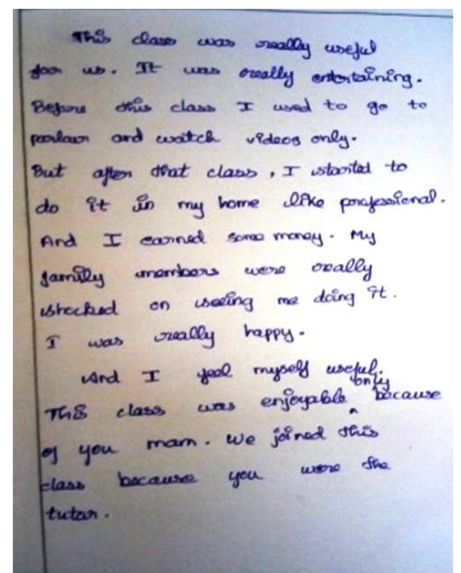 This class was really useful
for us. It was really entertaining.
Before this class I used to go to
parlaur and watch videos only.
But after that class, I started to
do it in my home like professional.
And I earned some money. My
family members were really
shocked on seeing me doing it.
I was really happy.
And I feel myself useful.
This class was enjoyable only because
of you mam. We joined this
class because you were the
tutar.